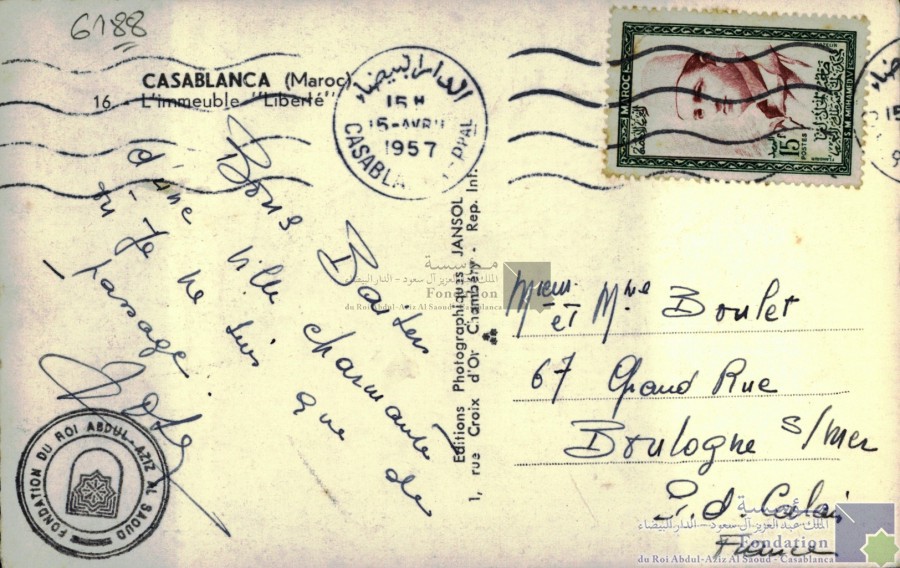 6188
CASABLANCA (Maroc)
16 - L'immeuble "Liberté"
الدار البيضاء
15 H
15-AVRIL
1957
CASABLA
PPAL
MAROC
15
POSTES
S.M. MOHAMED V
Bons Baisers
d'une ville charmante
où je ne suis que de
passage
Editions Photographiques JANSOL
1, rue Croix d'Or Chambéry - Rep. Int.
Mr et Mme Boulet
67 Grand Rue
Boulogne s/mer
P. d. Calais
France
FONDATION DU ROI ABDUL-AZIZ AL SAOUD
مؤسسة
الملك عبد العزيز آل سعود - الدار البيضاء
Fondation
du Roi Abdul-Aziz Al Saoud - Casablanca
مؤسسة
الملك عبد العزيز آل سعود - الدار البيضاء
Fondation
du Roi Abdul-Aziz Al Saoud - Casablanca